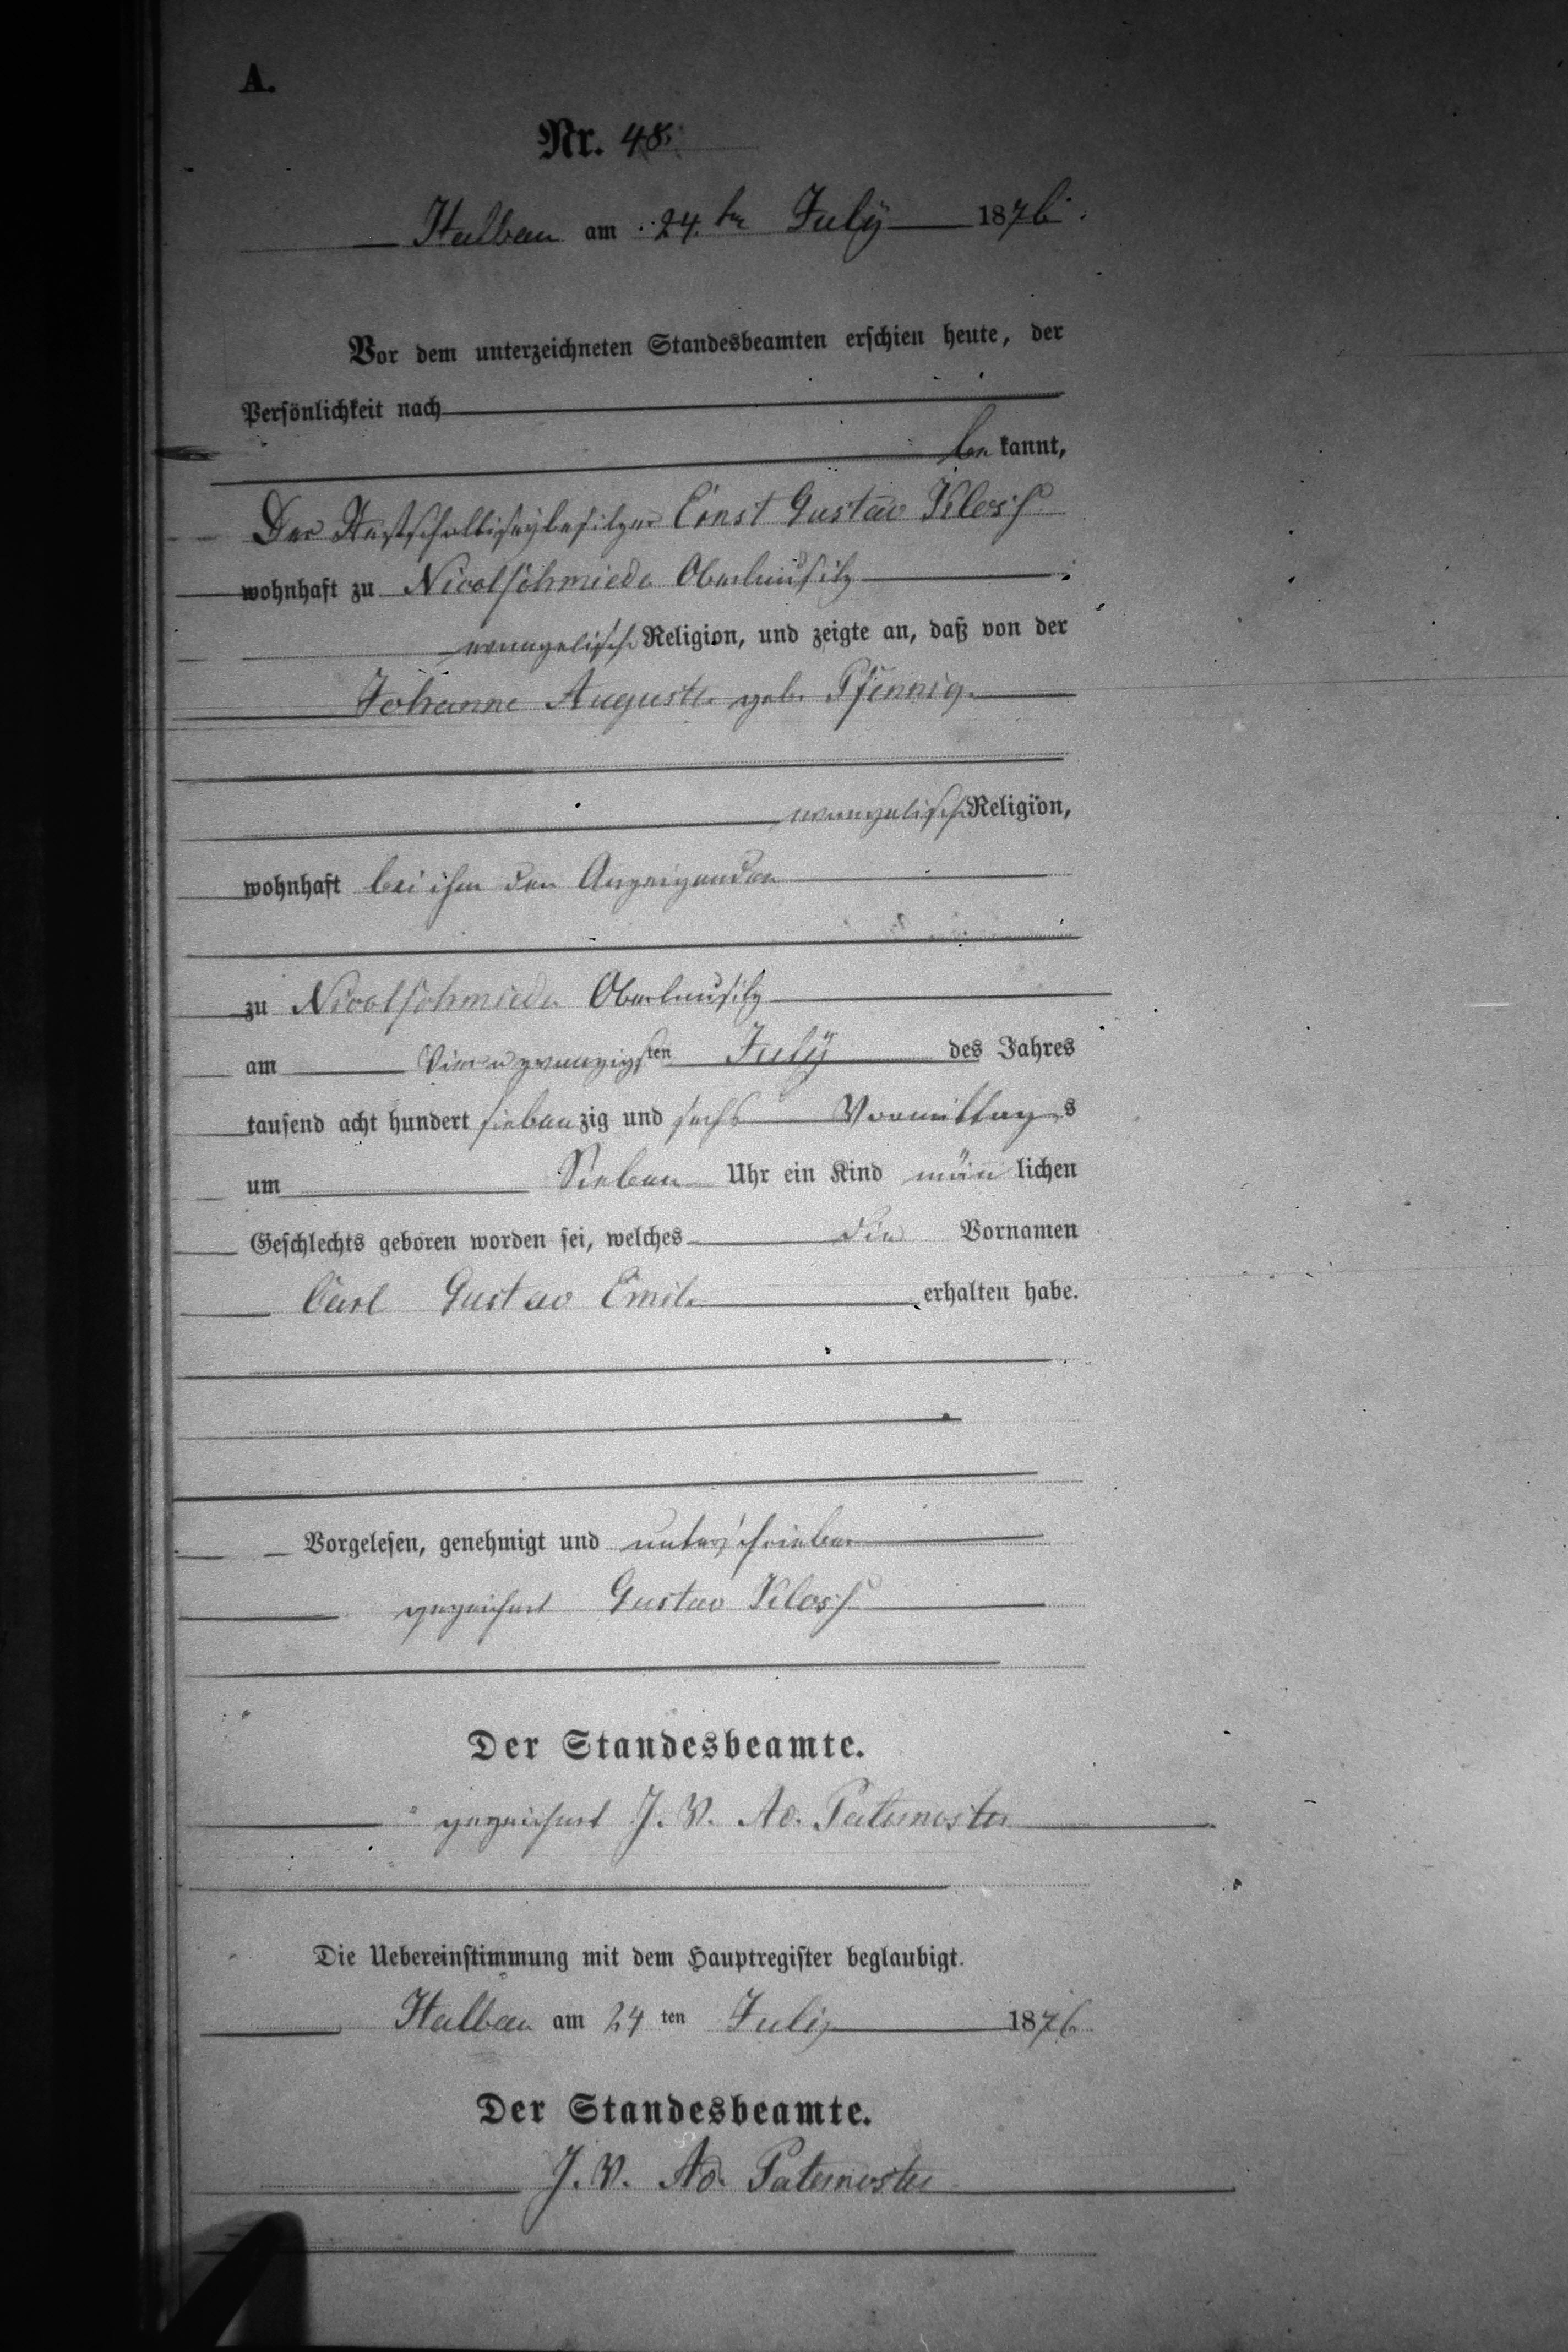 A.
Nr. 48.
Halbau am 24. ten July 1876.
Vor dem unterzeichneten Standesbeamten erschien heute, der
Persönlichkeit nach
be kannt,
Der Restscholtiseybesitzer Ernst Gustav Kloss
wohnhaft zu Nicolschmiede Oberlausitz
evangelische Religion, und zeigte an, daß von der
Johanne Auguste geb. Pfennig
evangelisch Religion,
wohnhaft bei ihm den Anzeigenden
zu Nicolschmiede Oberlausitz
am Vier u zwanzigsten July des Jahres
tausend acht hundert siebenzig und sechs Vormittags
um Sieben Uhr ein Kind männlichen
Geschlechts geboren worden sei, welches die Vornamen
Carl Gustav Emil erhalten habe.
Vorgelesen, genehmigt und unterschrieben
gezeichnet Gustav Kloss
Der Standesbeamte.
gezeichnet J. V. Ad. Paternoster
Die Uebereinstimmung mit dem Hauptregister beglaubigt.
Halbau am 24 ten July 1876
Der Standesbeamte.
J. V. Ad. Paternoster